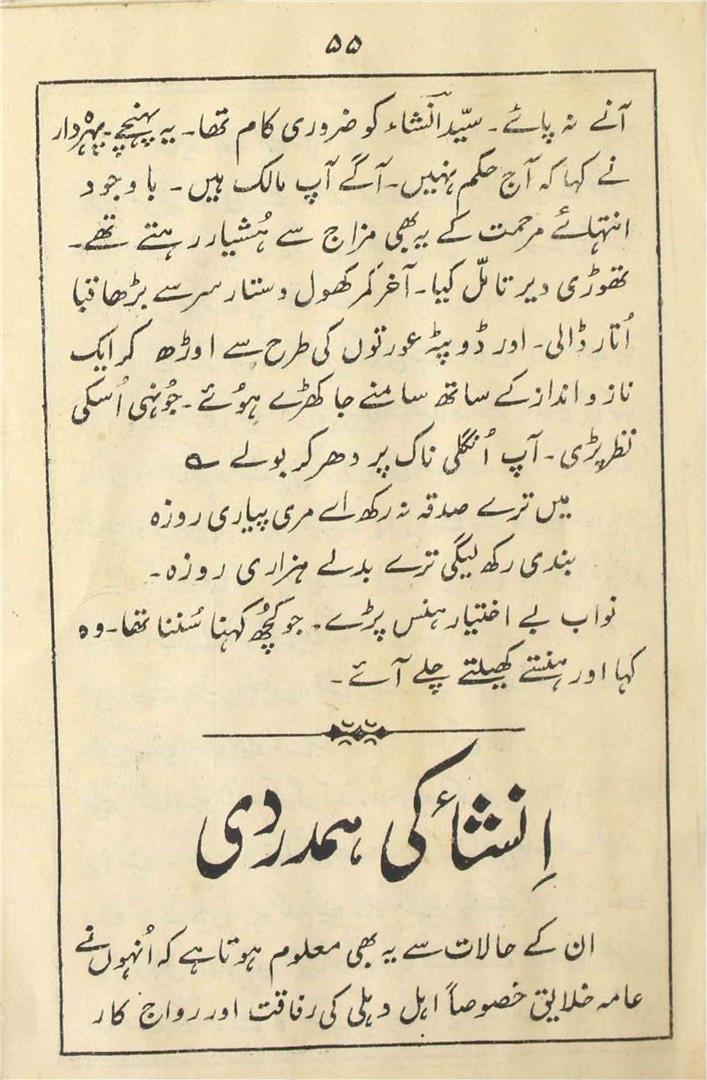 ۵۵
آنے نہ پائے۔ سیّد انشاء کو ضروری کام تھا۔ یہ پہنچے۔ پہرہ دار
نے کہا کہ آج حکم نہیں۔ آگے آپ مالک ہیں۔ باوجود
انتہائے مرحمت کے یہ بھی مزاج سے ہُشیار رہتے تھے۔
تھوڑی دیر تامّل کیا۔ آخر کمر کھول دستار سر سے بڑھا قبا
اُتار ڈالی۔ اور ڈوپٹہ عورتوں کی طرح سے اوڑھ کر ایک
ناز و انداز کے ساتھ سامنے جا کھڑے ہوُئے۔ جوُنہی اُسکی
نظر پڑی۔ آپ اُنگلی ناک پر دھر کر بولے ؎
میں ترے صدقہ نہ رکھ اے مری پیاری روزہ
بندی رکھ لیگی ترے بدلے ہزاری روزہ۔
نواب بے اختیار ہنس پڑے۔ جو کچُھ کہنا سُننا تھا۔ وہ
کہا اور ہنستے کھیلتے چلے آئے۔
اِنشاءؔ کی ہمدردی
ان کے حالات سے یہ بھی معلوم ہوتا ہے کہ اُنہوں نے
عامہ خلایق خصوصاً اہل دہلی کی رفاقت اور رواج کار